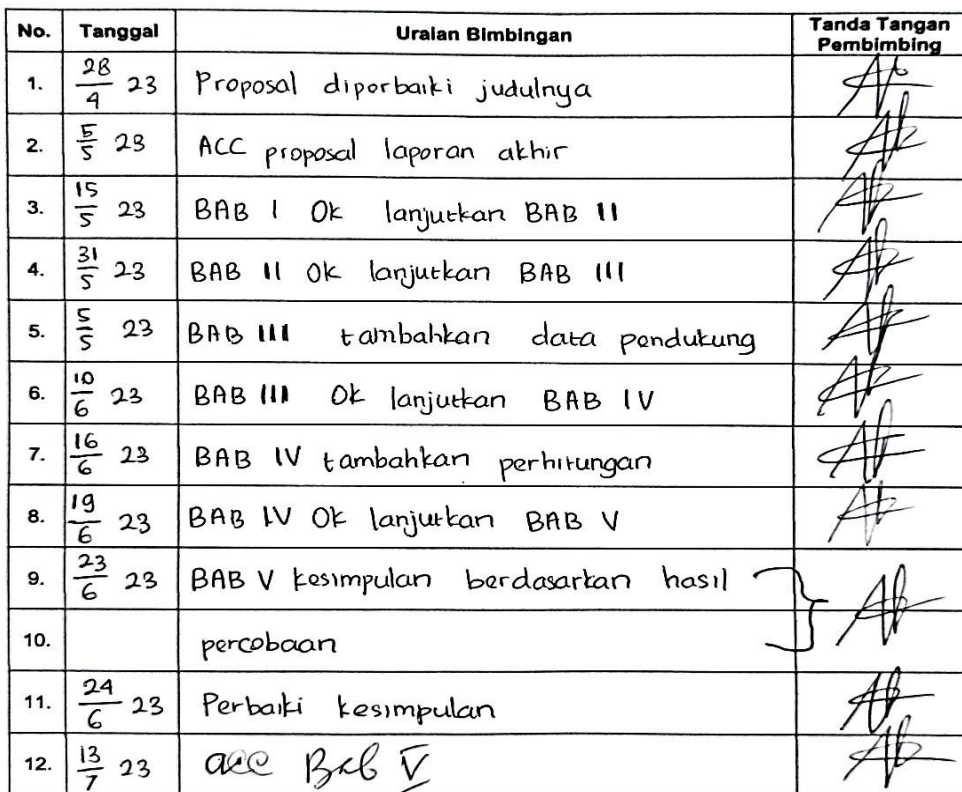 No. Tanggal Uraian Bimbingan Tanda Tangan Pembimbing
1. 28/4 23 Proposal diporbaiki judulnya
2. 5/5 23 ACC proposal laporan akhir
3. 15/5 23 BAB I Ok lanjutkan BAB II
4. 31/5 23 BAB II Ok lanjutkan BAB III
5. 5/5 23 BAB III tambahkan data pendukung
6. 10/6 23 BAB III Ok lanjutkan BAB IV
7. 16/6 23 BAB IV tambahkan perhitungan
8. 19/6 23 BAB IV Ok lanjutkan BAB V
9. 23/6 23 BAB V kesimpulan berdasarkan hasil
10. percobaan
11. 24/6 23 Perbaiki kesimpulan
12. 13/7 23 acc Bab V